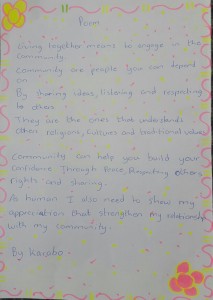 Poem
Living together means to engage in the
community.
Community are people you can depend
on
By sharing ideas, listening and respecting
to others.
They are the ones that understands
Other religions, Cultures and traditional values
Community can help you build your
Confidence Through Respecting others
rights and sharing.
As human I also need to show my
appreciation that strengthen my relationship
with my community.
By Karabo